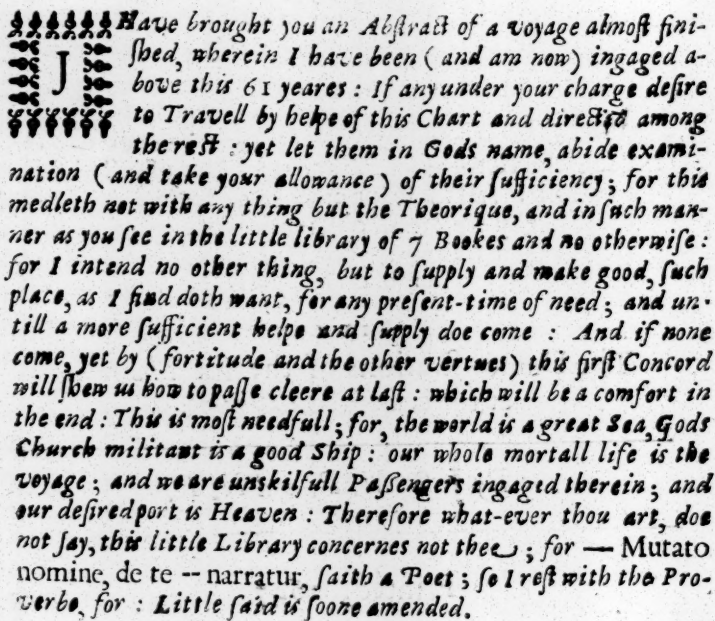 J Have brought you an Abſtract of a voyage almoſt fini-
ſhed, wherein I have been ( and am now ) ingaged a-
bove this 61 yeares : If any under your charge deſire
to Travell by helpe of this Chart and directed among
the reſt : yet let them in Gods name, abide exami-
nation ( and take your allowance ) of their ſufficiency ; for this
medleth not with any thing but the Theorique, and in ſuch man-
ner as you ſee in the little library of 7 Bookes and no otherwiſe :
for I intend no other thing, but to ſupply and make good, ſuch
place, as I find doth want, for any preſent-time of need ; and un-
till a more ſufficient helpe and ſupply doe come : And if none
come, yet by ( fortitude and the other vertues ) this firſt Concord
will ſhew us how to paſſe cleere at laſt : which will be a comfort in
the end : This is moſt needfull ; for, the world is a great Sea, Gods
Church militant is a good Ship : our whole mortall life is the
voyage ; and we are unskilfull Paſſengers ingaged therein ; and
our deſired port is Heaven : Therefore what-ever thou art, doe
not ſay, this little Library concernes not thee ; for — Mutato
nomine, de te -- narratur, ſaith a Poet ; ſo I reſt with the Pro-
verbe, for : Little ſaid is ſoone amended.